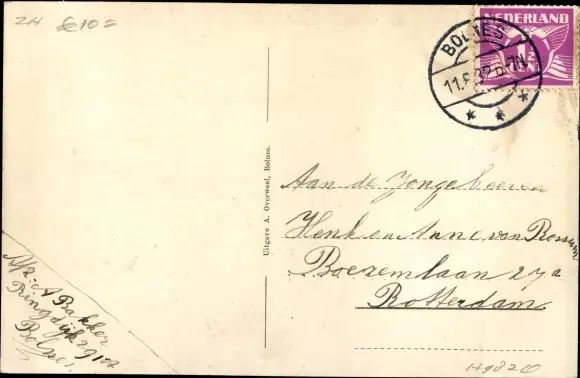 ZH £10=
NEDERLAND
BOLNES
Uitgave A. Overweel, Bolnes.
Aan de Jongeheeren
Henk en Anne van Rossum
Boezemlaan 27a
Rotterdam
Afz: A Bakker
Ringdijk
Bolnes.
H9820